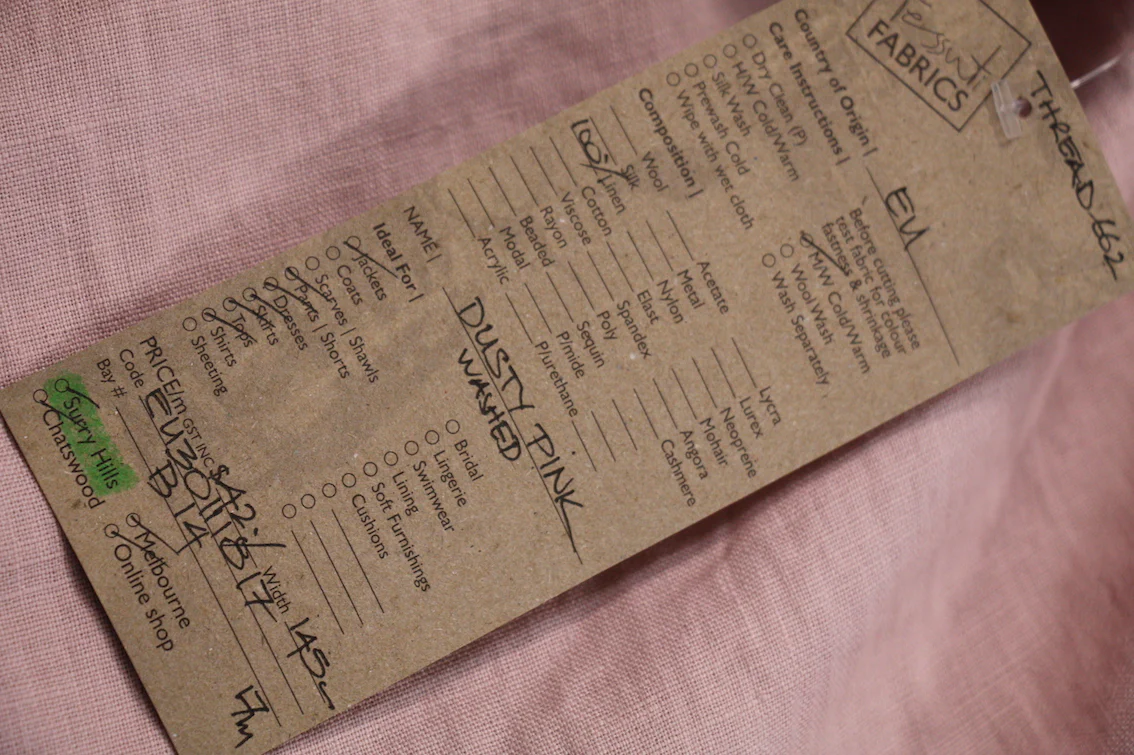 THREAD 662
Tessuti
FABRICS
Country of Origin | EU
Care Instructions |
Before cutting please
test fabric for colour
fastness & shrinkage
Dry Clean (P)
H/W Cold/Warm
Silk Wash
Prewash Cold
Wipe with wet cloth
M/W Cold/Warm
Wool Wash
Wash Separately
Composition |
Wool
Silk
100% Linen
Cotton
Viscose
Rayon
Beaded
Modal
Acrylic
Acetate
Metal
Nylon
Elast
Spandex
Poly
Sequin
P/mide
P/urethane
Lycra
Lurex
Neoprene
Mohair
Angora
Cashmere
NAME | DUSTY PINK
WASHED
Ideal For |
Jackets
Coats
Scarves | Shawls
Pants | Shorts
Dresses
Skirts
Tops
Shirts
Sheeting
Bridal
Lingerie
Swimwear
Lining
Soft Furnishings
Cushions
PRICE/m GST INC $42.
Width 145c
Code
Bay # B14
17m
Surry Hills
Chatswood
Melbourne
Online shop